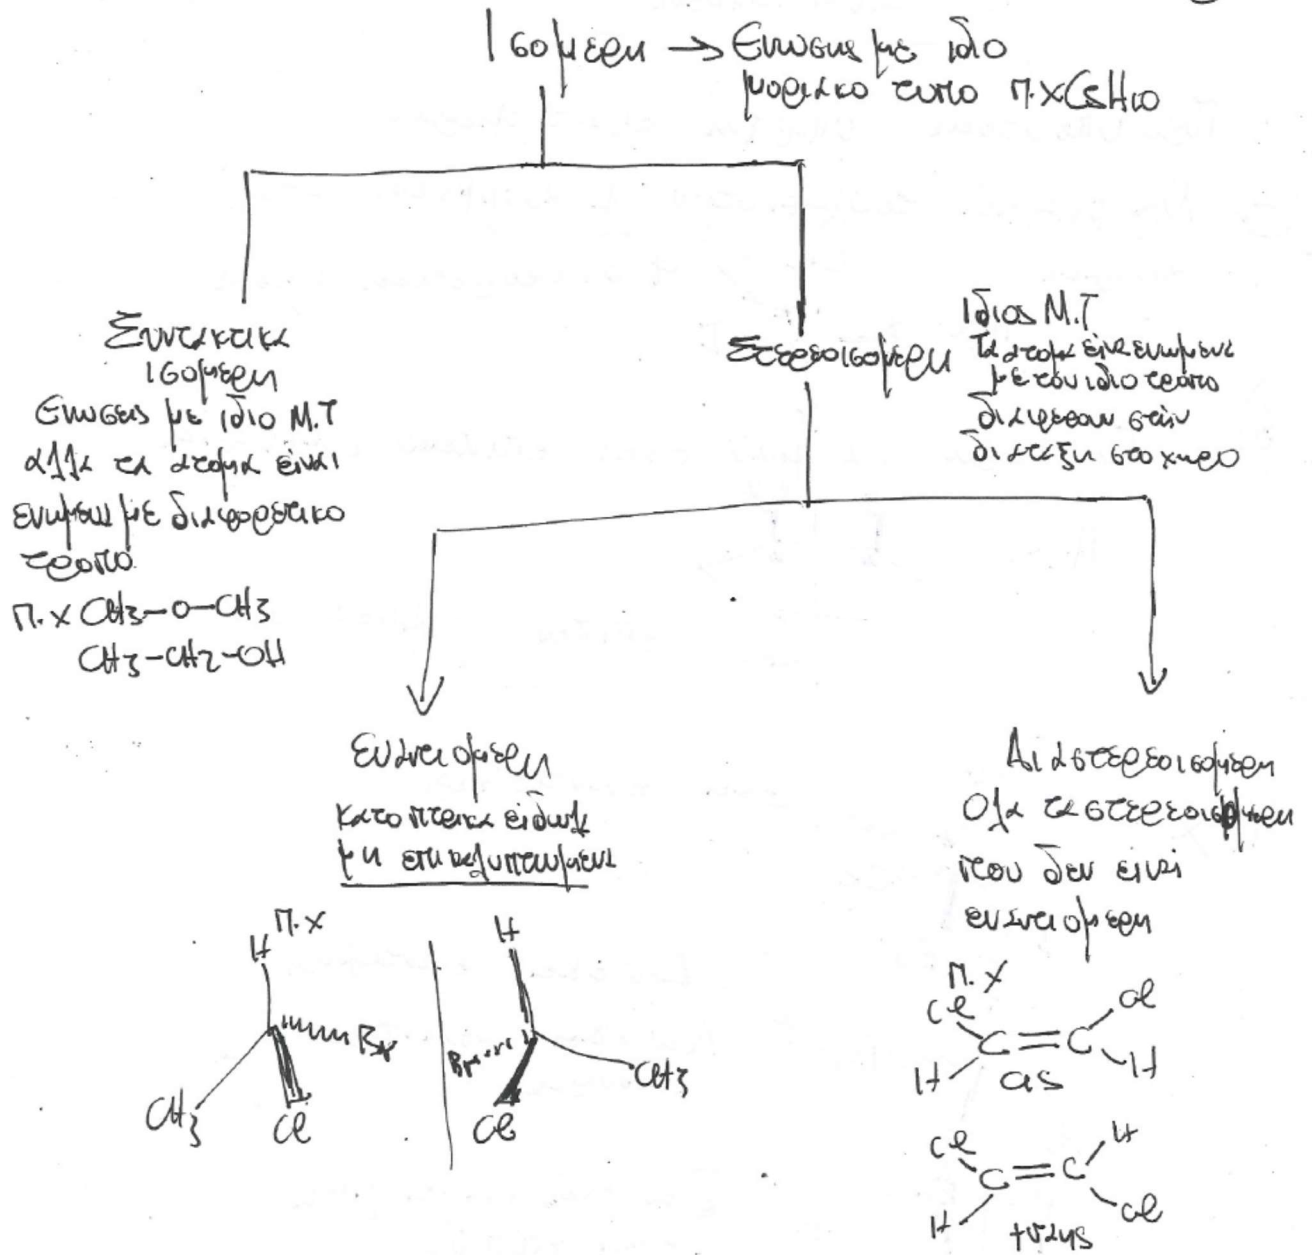 Ισομερη → Ενωσεις με ιδιο
μοριακο τυπο π.χ C5H10
Συντακτικα
ισομερη
Ενωσεις με ιδιο Μ.Τ
αλλα τα ατομα ειναι
ενωμενα με διαφορετικο
τροπο
π.χ CH3-O-CH3
CH3-CH2-OH
Στερεοισομερη
Ιδιος Μ.Τ
Τα ατομα ειναι ενωμενα
με τον ιδιο τροπο
διαφερουν στην
διαταξη στο χωρο
Εναντιομερη
κατοπτρικα ειδωλα
μη επικαλυπτωμενα
π.χ
H
Br
CH3
Cl
H
Br
CH3
Cl
Διαστερεοισομερη
Ολα τα στερεοισομερη
που δεν ειναι
εναντιομερη
π.χ
Cl
Cl
C=C
H
H
cis
Cl
H
C=C
H
Cl
trans